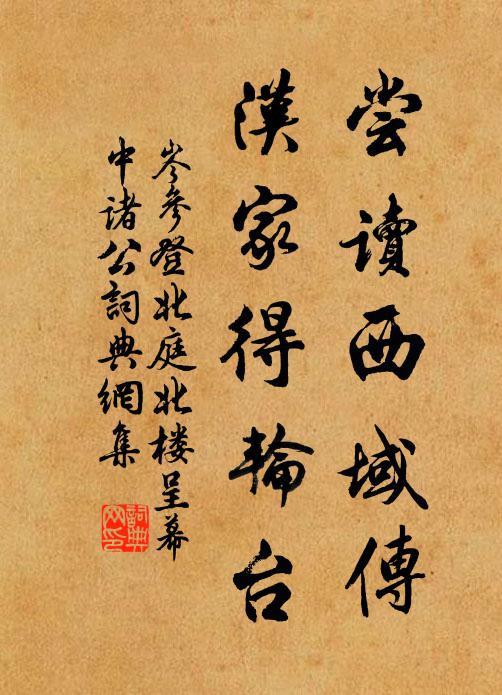 尝讀西域傳
漢家得輪台
岑參登北庭北楼呈幕
中諸公詞典網集
詞典
网印